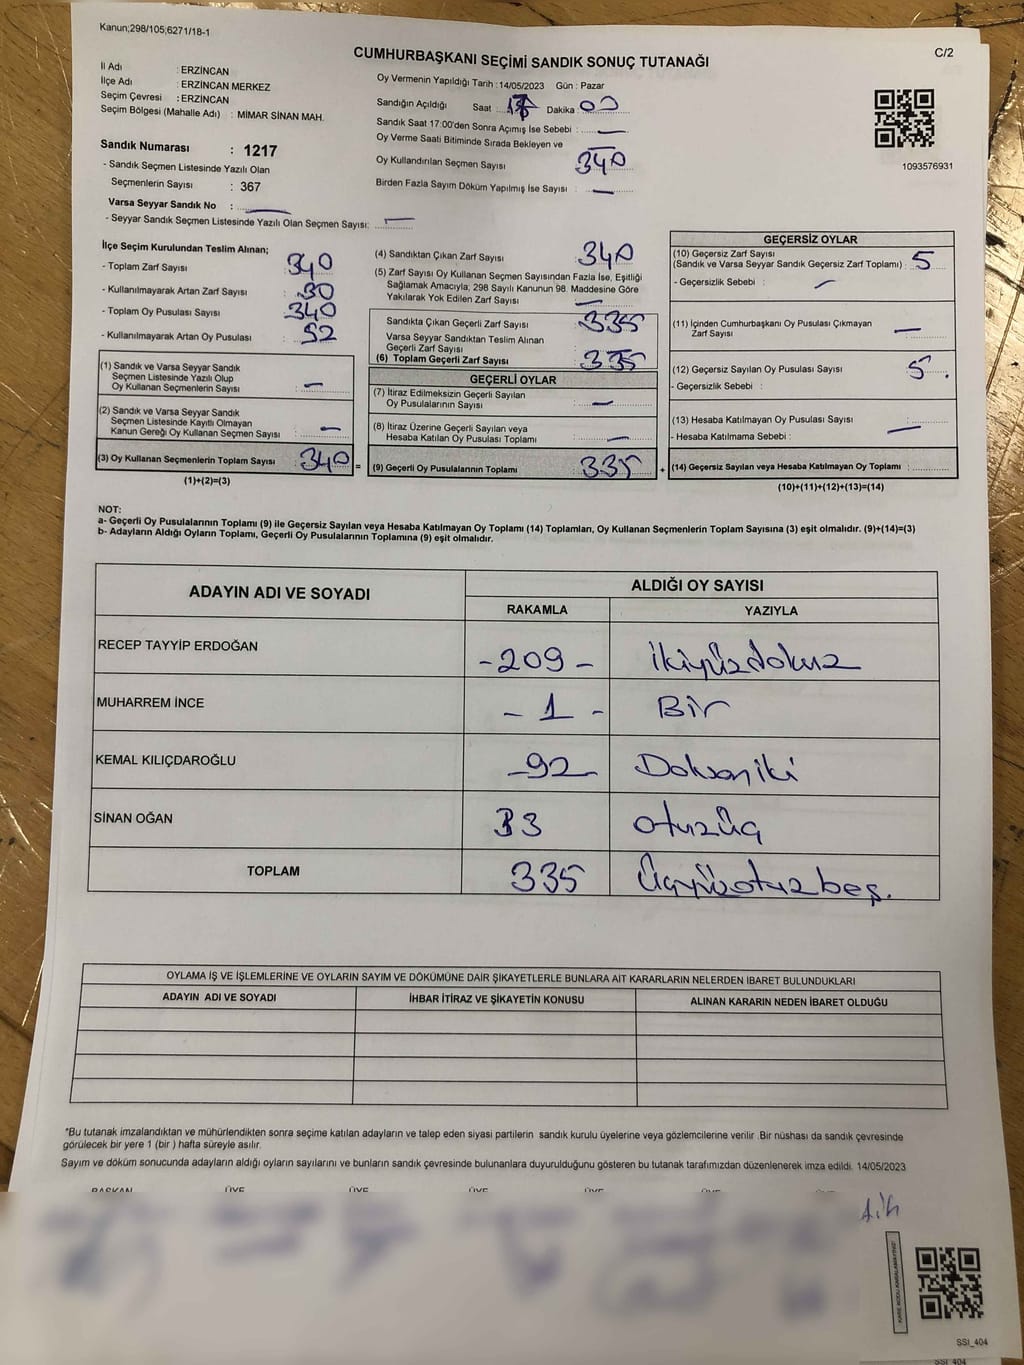 Kanun;298/105;6271/18-1
C/2
CUMHURBAŞKANI SEÇİMİ SANDIK SONUÇ TUTANAĞI
İl Adı : ERZİNCAN
İlçe Adı : ERZİNCAN MERKEZ
Seçim Çevresi : ERZİNCAN
Seçim Bölgesi (Mahalle Adı) : MİMAR SİNAN MAH.
Sandık Numarası : 1217
- Sandık Seçmen Listesinde Yazılı Olan
Seçmenlerin Sayısı : 367
Varsa Seyyar Sandık No : —
- Seyyar Sandık Seçmen Listesinde Yazılı Olan Seçmen Sayısı: —
Oy Vermenin Yapıldığı Tarih : 14/05/2023 Gün : Pazar
Sandığın Açıldığı Saat Dakika 00
Sandık Saat 17:00'den Sonra Açımış İse Sebebi : —
Oy Verme Saati Bitiminde Sırada Bekleyen ve —
Oy Kullandırılan Seçmen Sayısı 340
Birden Fazla Sayım Döküm Yapılmış İse Sayısı : —
1093576931
İlçe Seçim Kurulundan Teslim Alınan;
- Toplam Zarf Sayısı : 340
- Kullanılmayarak Artan Zarf Sayısı : 30
- Toplam Oy Pusulası Sayısı : 340
- Kullanılmayarak Artan Oy Pusulası : 52
(1) Sandık ve Varsa Seyyar Sandık
Seçmen Listesinde Yazılı Olup
Oy Kullanan Seçmenlerin Sayısı : —
(2) Sandık ve Varsa Seyyar Sandık
Seçmen Listesinde Kayıtlı Olmayan
Kanun Gereği Oy Kullanan Seçmen Sayısı : —
(3) Oy Kullanan Seçmenlerin Toplam Sayısı : 340 =
(1)+(2)=(3)
(4) Sandıktan Çıkan Zarf Sayısı : 340
(5) Zarf Sayısı Oy Kullanan Seçmen Sayısından Fazla İse, Eşitliği
Sağlamak Amacıyla; 298 Sayılı Kanunun 98. Maddesine Göre
Yakılarak Yok Edilen Zarf Sayısı : —
Sandıkta Çıkan Geçerli Zarf Sayısı : 335
Varsa Seyyar Sandıktan Teslim Alınan
Geçerli Zarf Sayısı :
(6) Toplam Geçerli Zarf Sayısı : 335
GEÇERLİ OYLAR
(7) İtiraz Edilmeksizin Geçerli Sayılan
Oy Pusulalarının Sayısı : —
(8) İtiraz Üzerine Geçerli Sayılan veya
Hesaba Katılan Oy Pusulası Toplamı : —
(9) Geçerli Oy Pusulalarının Toplamı : 335 +
GEÇERSİZ OYLAR
(10) Geçersiz Zarf Sayısı
(Sandık ve Varsa Seyyar Sandık Geçersiz Zarf Toplamı) : 5
- Geçersizlik Sebebi : —
(11) İçinden Cumhurbaşkanı Oy Pusulası Çıkmayan
Zarf Sayısı : —
(12) Geçersiz Sayılan Oy Pusulası Sayısı : 5.
- Geçersizlik Sebebi :
(13) Hesaba Katılmayan Oy Pusulası Sayısı :
- Hesaba Katılmama Sebebi : —
(14) Geçersiz Sayılan veya Hesaba Katılmayan Oy Toplamı :
(10)+(11)+(12)+(13)=(14)
NOT:
a- Geçerli Oy Pusulalarının Toplamı (9) ile Geçersiz Sayılan veya Hesaba Katılmayan Oy Toplamı (14) Toplamları, Oy Kullanan Seçmenlerin Toplam Sayısına (3) eşit olmalıdır. (9)+(14)=(3)
b- Adayların Aldığı Oyların Toplamı, Geçerli Oy Pusulalarının Toplamına (9) eşit olmalıdır.
ADAYIN ADI VE SOYADI
ALDIĞI OY SAYISI
RAKAMLA YAZIYLA
RECEP TAYYİP ERDOĞAN -209- ikiyüzdokuz
MUHARREM İNCE -1- Bir
KEMAL KILIÇDAROĞLU -92- Doksaniki
SİNAN OĞAN 33 otuzüç
TOPLAM 335 üçyüzotuzbeş.
OYLAMA İŞ VE İŞLEMLERİNE VE OYLARIN SAYIM VE DÖKÜMÜNE DAİR ŞİKAYETLERLE BUNLARA AİT KARARLARIN NELERDEN İBARET BULUNDUKLARI
ADAYIN ADI VE SOYADI İHBAR İTİRAZ VE ŞİKAYETİN KONUSU ALINAN KARARIN NEDEN İBARET OLDUĞU
*Bu tutanak imzalandıktan ve mühürlendikten sonra seçime katılan adayların ve talep eden siyasi partilerin sandık kurulu üyelerine veya gözlemcilerine verilir .Bir nüshası da sandık çevresinde
görülecek bir yere 1 (bir ) hafta süreyle asılır.
Sayım ve döküm sonucunda adayların aldığı oyların sayılarını ve bunların sandık çevresinde bulunanlara duyurulduğunu gösteren bu tutanak tarafımızdan düzenlenerek imza edildi. 14/05/2023
BAŞKAN ÜYE ÜYE ÜYE ÜYE ÜYE ÜYE
KARE KODU KARALAMAYINIZ!
SSI_404
SSI_404